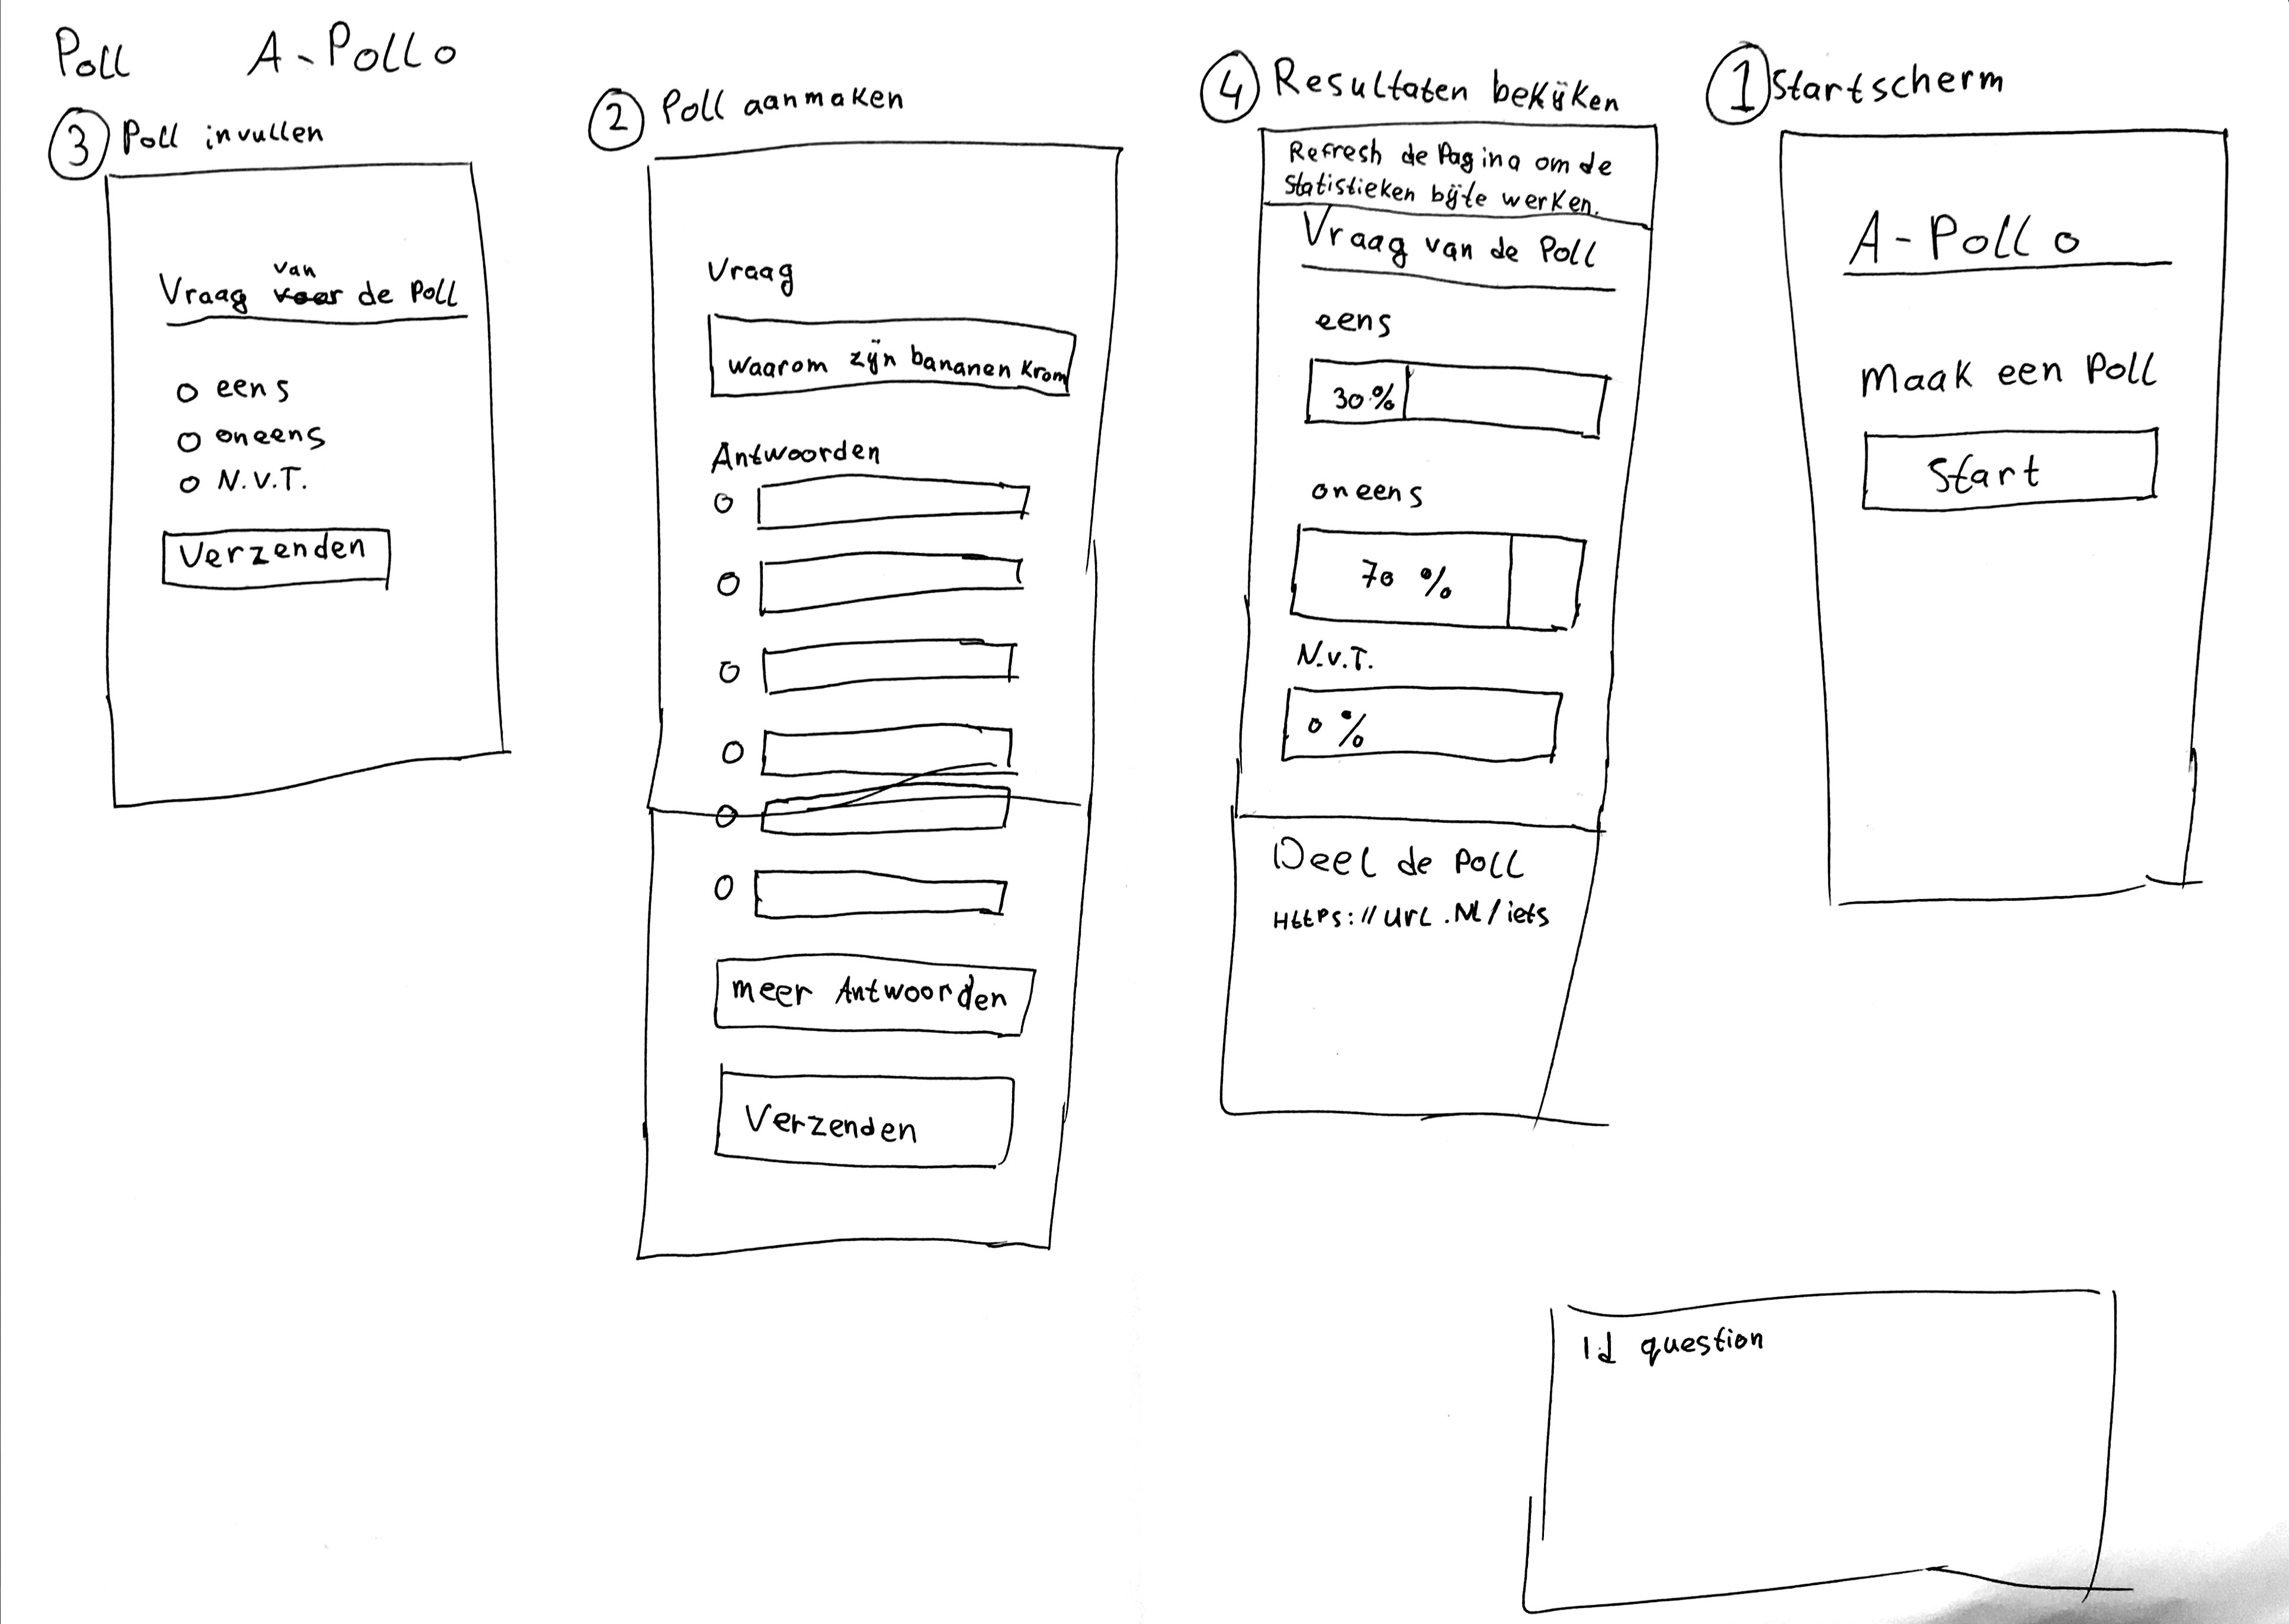 Poll A-Pollo
3 Poll invullen
van
Vraag voor de Poll
eens
oneens
N.V.T.
Verzenden
2 Poll aanmaken
Vraag
waarom zijn bananen krom
Antwoorden
meer Antwoorden
Verzenden
4 Resultaten bekijken
Refresh de Pagina om de
Statistieken bij te werken.
Vraag van de Poll
eens
30%
oneens
70 %
N.V.T.
0 %
Deel de Poll
Https://url.nl/iets
1 Startscherm
A-Pollo
maak een Poll
Start
Id question